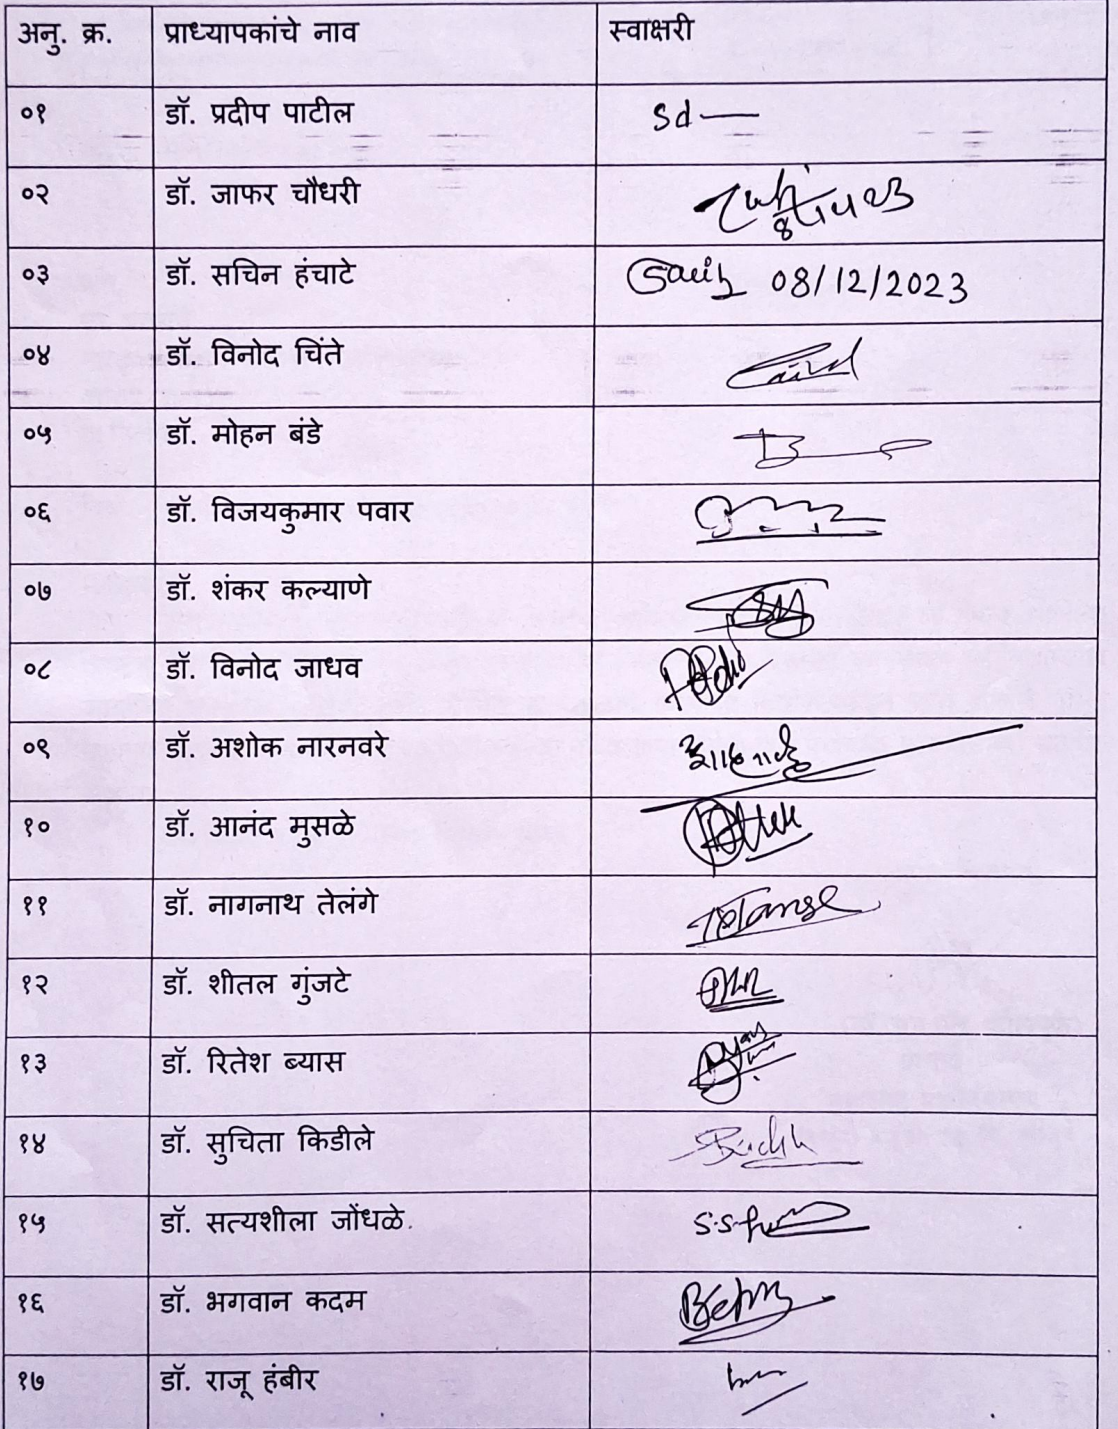 अनु. क्र. प्राध्यापकांचे नाव स्वाक्षरी
०१ डॉ. प्रदीप पाटील Sd—
०२ डॉ. जाफर चौधरी
०३ डॉ. सचिन हंचाटे 08/12/2023
०४ डॉ. विनोद चिंते
०५ डॉ. मोहन बंडे
०६ डॉ. विजयकुमार पवार
०७ डॉ. शंकर कल्याणे
०८ डॉ. विनोद जाधव
०९ डॉ. अशोक नारनवरे
१० डॉ. आनंद मुसळे
११ डॉ. नागनाथ तेलंगे
१२ डॉ. शीतल गुंजटे
१३ डॉ. रितेश ब्यास
१४ डॉ. सुचिता किडीले
१५ डॉ. सत्यशीला जोंधळे.
१६ डॉ. भगवान कदम
१७ डॉ. राजू हंबीर